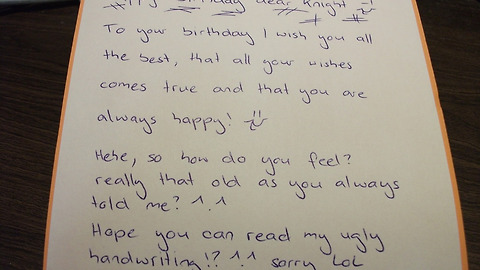 Birthday dear Knight
To your birthday I wish you all
the best, that all your wishes
comes true and that you are
always happy!
Hehe, so how do you feel?
really that old as you always
told me? ^.^
Hope you can read my ugly
handwriting!? ^.^ sorry LoL